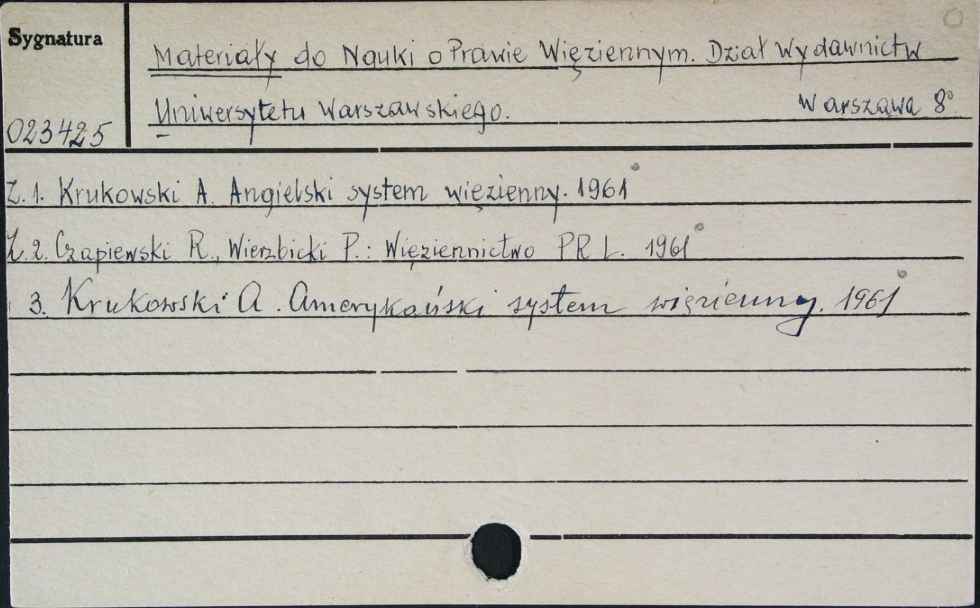 Sygnatura
Materiały do Nauki o Prawie Więziennym. Dział Wydawnictw
Uniwersytetu Warszawskiego. Warszawa 8°
023425
Z. 1. Krukowski A. Angielski system więzienny. 1961°
Z. 2. Czapiewski R., Wierzbicki P.: Więziennictwo PRL. 1961°
3. Krukowski A. Amerykański system więzienny. 1961°